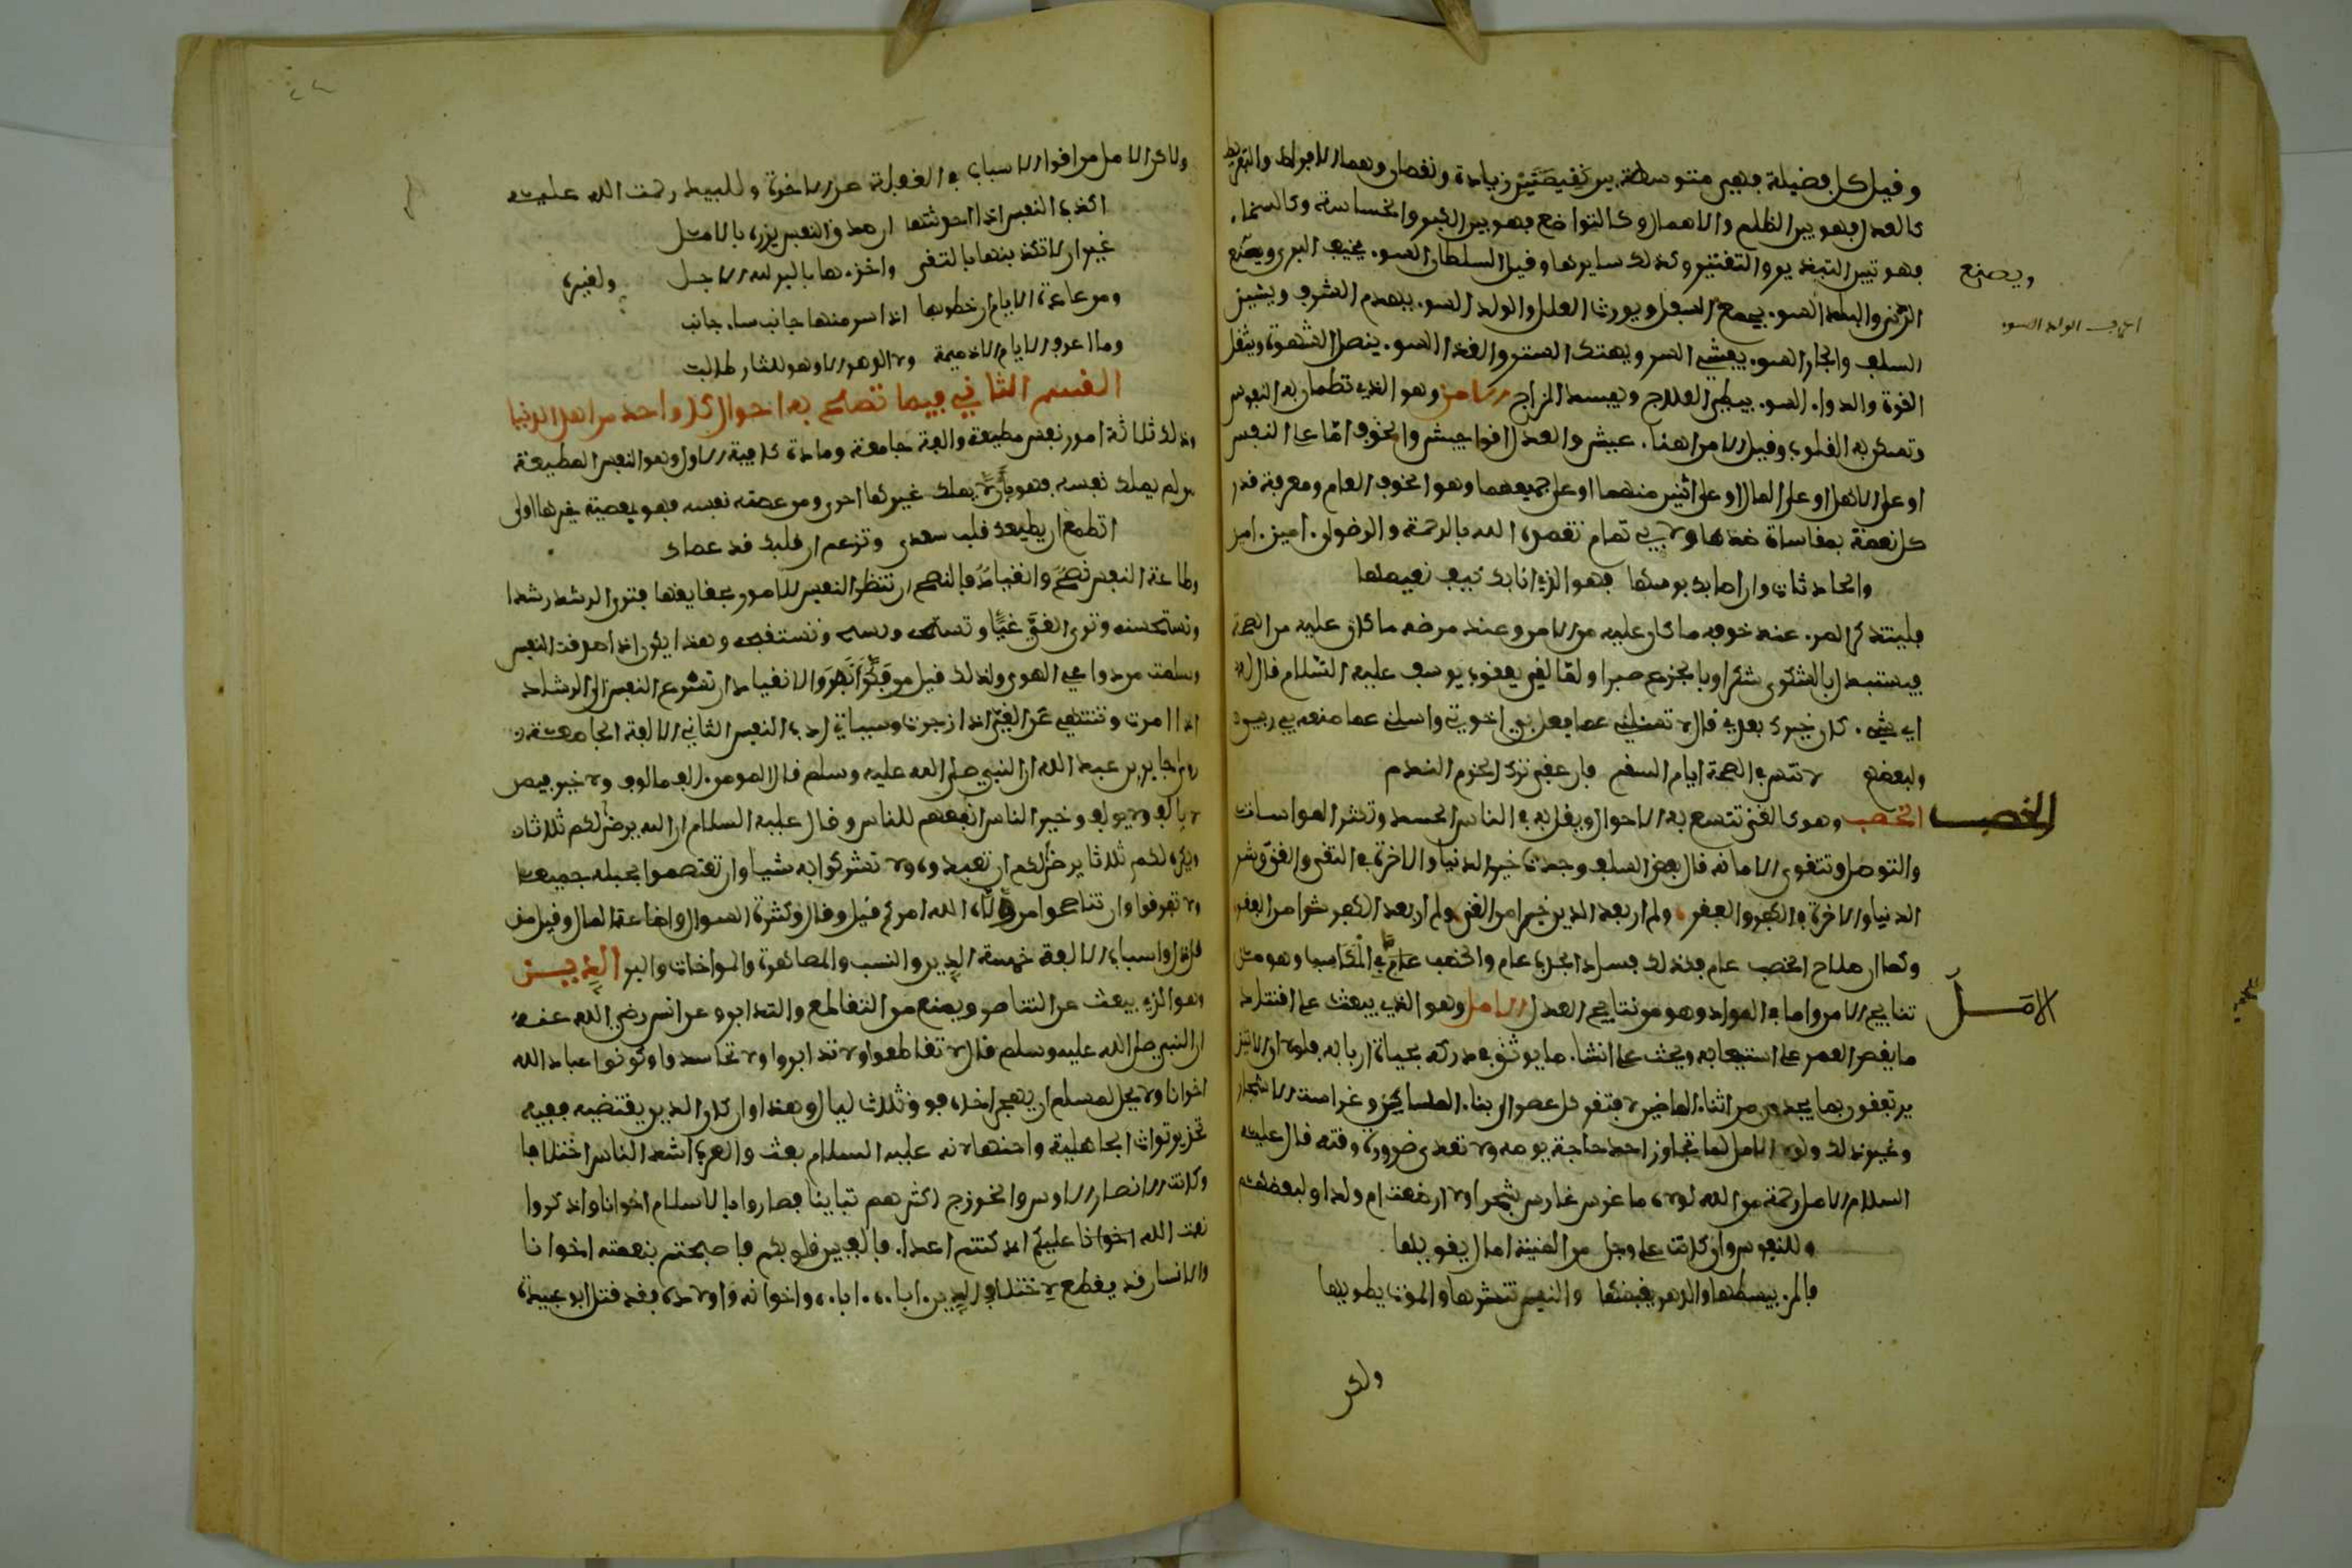 وقيل كل فضيلة فهي متوسطة بين نقيصتين زيادة ونقصان وهما الافراط والتفريط
كالعدل فهو بين الظلم والاهمال وكالتواضع فهو بين الكبر والخساسة وكالسخاء
فهو بين التبذير والتقتير وكذلك سايرها وقيل السلطان السوء يخيف البرى ويصنع
ويصنع
السوء يجمع السفل ويورث العلل والولد السوء يهدم الشرف ويشين
اعرف الولد السوء
السلف والجار السوء يفشي السر ويهتك الستر والغذا السوء
القوة والدواء السوء يبطى العلاج ويفسد المزاج الامن وهو الذي تطمان به النفوس
وتسكن به القلوب وقيل الامن اهنا عيش والعدل اقوا جيش والخوف اما على النفس
او على الاهل او على المال او على اثنين منهما او على جميعهما وهو الخوف العام ومعرفة قدر
كل نعمة بمقاساة ضدها ولابي تمام تغمده الله بالرحمة والرضوان امين امين
والحادثات وان اصابك بوسها فهو الذي انابك كيف نعيمها
فليتذكر المرء عند خوفه ما كان عليه من الامن وعند مرضه ما كان عليه من الصحة
فيستبدل بالشكوى شكرا وبالجزع صبرا ولما لقي يعقوب يوسف عليه السلام قال له
اي شيء كان خبرك بعدي قال لا تسئلني عما فعل بي اخوتي واسئلني عما صنعه بي ربي
ولبعضهم لا تنس في الصحة ايام السقم فان عقبى ترك الحزم الندم
الخصب
الخصب وهو كالغنى تتسع به الاحوال ويقل به في الناس الحسد وتكثر المواسات
والتوصل وتتقوى الامانه قال بعض السلف وجدت خير الدنيا والاخرة في التقى والغنى وشر
الدنيا والاخرة في الكفر والفقر ولم ار بعد الدين خيرا من الغنى ولم ار بعد الكفر شرا من الفقر
وكما ان صلاح الخصب عام فكذلك فساد الجدب عام والخصب عام في المكاسب وهو من
الامل
نتايج الامن واما في المواد وهو من نتايج العدل الامل وهو الذي يبعث على اقتناء
ما يقصر العمر على استيعابه ويحث على انشاء ما يوثق في دركه بحياة اربابه فلولا ان الاخير
يرتفقون بما يجدون من اثناء الماضين لافتقر كل عصر الى بناء المساكن وغراست الاشجار
وغير ذلك ولولا الامل لما تجاوز احد حاجة يومه ولا تعدى ضرورة وقته قال عليه
السلام الامل رحمة من الله لولاه ما غرس غارس شجرا ولا ارضعت ام ولدا ولبعضهم
وللنفوس وان كانت على وجل من المنية امال يقويها
فالمرء يبسطها والدهر يقبضها والنفس تنشرها والموت يطويها
ولكن
ولاكن الامل من اقوا الاسباب في الغفلة عن الاخرة وللبيد رحمت الله عليه
اكذب النفس اذا حدثتها ان صدق النفس يزري بالامل
غير ان لا تكذبنها بالتقى واخزها بالبر لله الاجل ولغيره
ومن عادة الايام ان خطوبها اذا سر منها جانب ساء جانب
وما اعرف الايام الا ذميمة ولا الدهر الا وهو للثار طالب
القسم الثاني فيما تصلح به احوال كل واحد من اهل الدنيا
وذلك ثلاثة امور نفس مطيعة والفة جامعة ومادة كافية الاول وهو النفس المطيعة
من لم يملك نفسه فهو بان لا يملك غيرها احرى ومن عصته نفسه فهو بمعصية غيرها اولى
اتطمع ان يطيعك قلب سعدى وتزعم ان قلبك قد عصاك
وطاعة النفس نصح وانقياد فالنصح ان تنظر النفس للامور بحقايقها فترى الرشد رشدا
وتستحسنه وترى الغي غيا وتستقبحه وهذا يكون اذا صدقت النفس
وسلمت من دواعي الهوى ولذلك قيل من فكر ابصر والانقياد ان تسرع النفس الى الرشاد
اذا امرت وتنتهي عن الغي اذا زجرت وسياتي ادب النفس الثاني الالفة الجامعة
روى جابر بن عبد الله ان النبي صلى الله عليه وسلم قال المومن الف مالوف ولا خير فيمن
لا يالف ولا يولف وخير الناس انفعهم للناس وقال عليه السلام ان الله يرضى لكم ثلاثا
ويكره لكم ثلاثا يرضى لكم ان تعبدوه ولا تشركوا به شيا وان تعتصموا بحبله جميعا
ولا تفرقوا وان تناصحوا من ولاه الله امركم قيل وقال وكثرة السوال واضاعة المال وقيل من
واسباب الالفة خمسة الدين والنسب والمصاهرة والمواخات والبر الدين
وهو الذي يبعث عن التناصر ويمنع من التقاطع والتدابر روى عن انس رضي الله عنه
ان النبي صلى الله عليه وسلم قال لا تقاطعوا ولا تدابروا ولا تحاسدوا وكونوا عباد الله
اخوانا ولا يحل لمسلم ان يهجر اخاه فوق ثلاث ليال وهذا وان كان الدين يقتضيه ففيه
تحذير تراث الجاهلية واحنها لانه عليه السلام بعث والعرب اشد الناس اختلافا
وكانت الانصار الاوس والخزرج اكثرهم تباينا فصاروا بالاسلام اخوانا واذكروا
نعمت الله اخوانا عليكم اذ كنتم اعداء فالف بين قلوبكم فاصبحتم بنعمته اخوانا
والانسان قد يقطع لاختلاف الدين اباه واخوانه واولاده فقد قتل ابو عبيدة